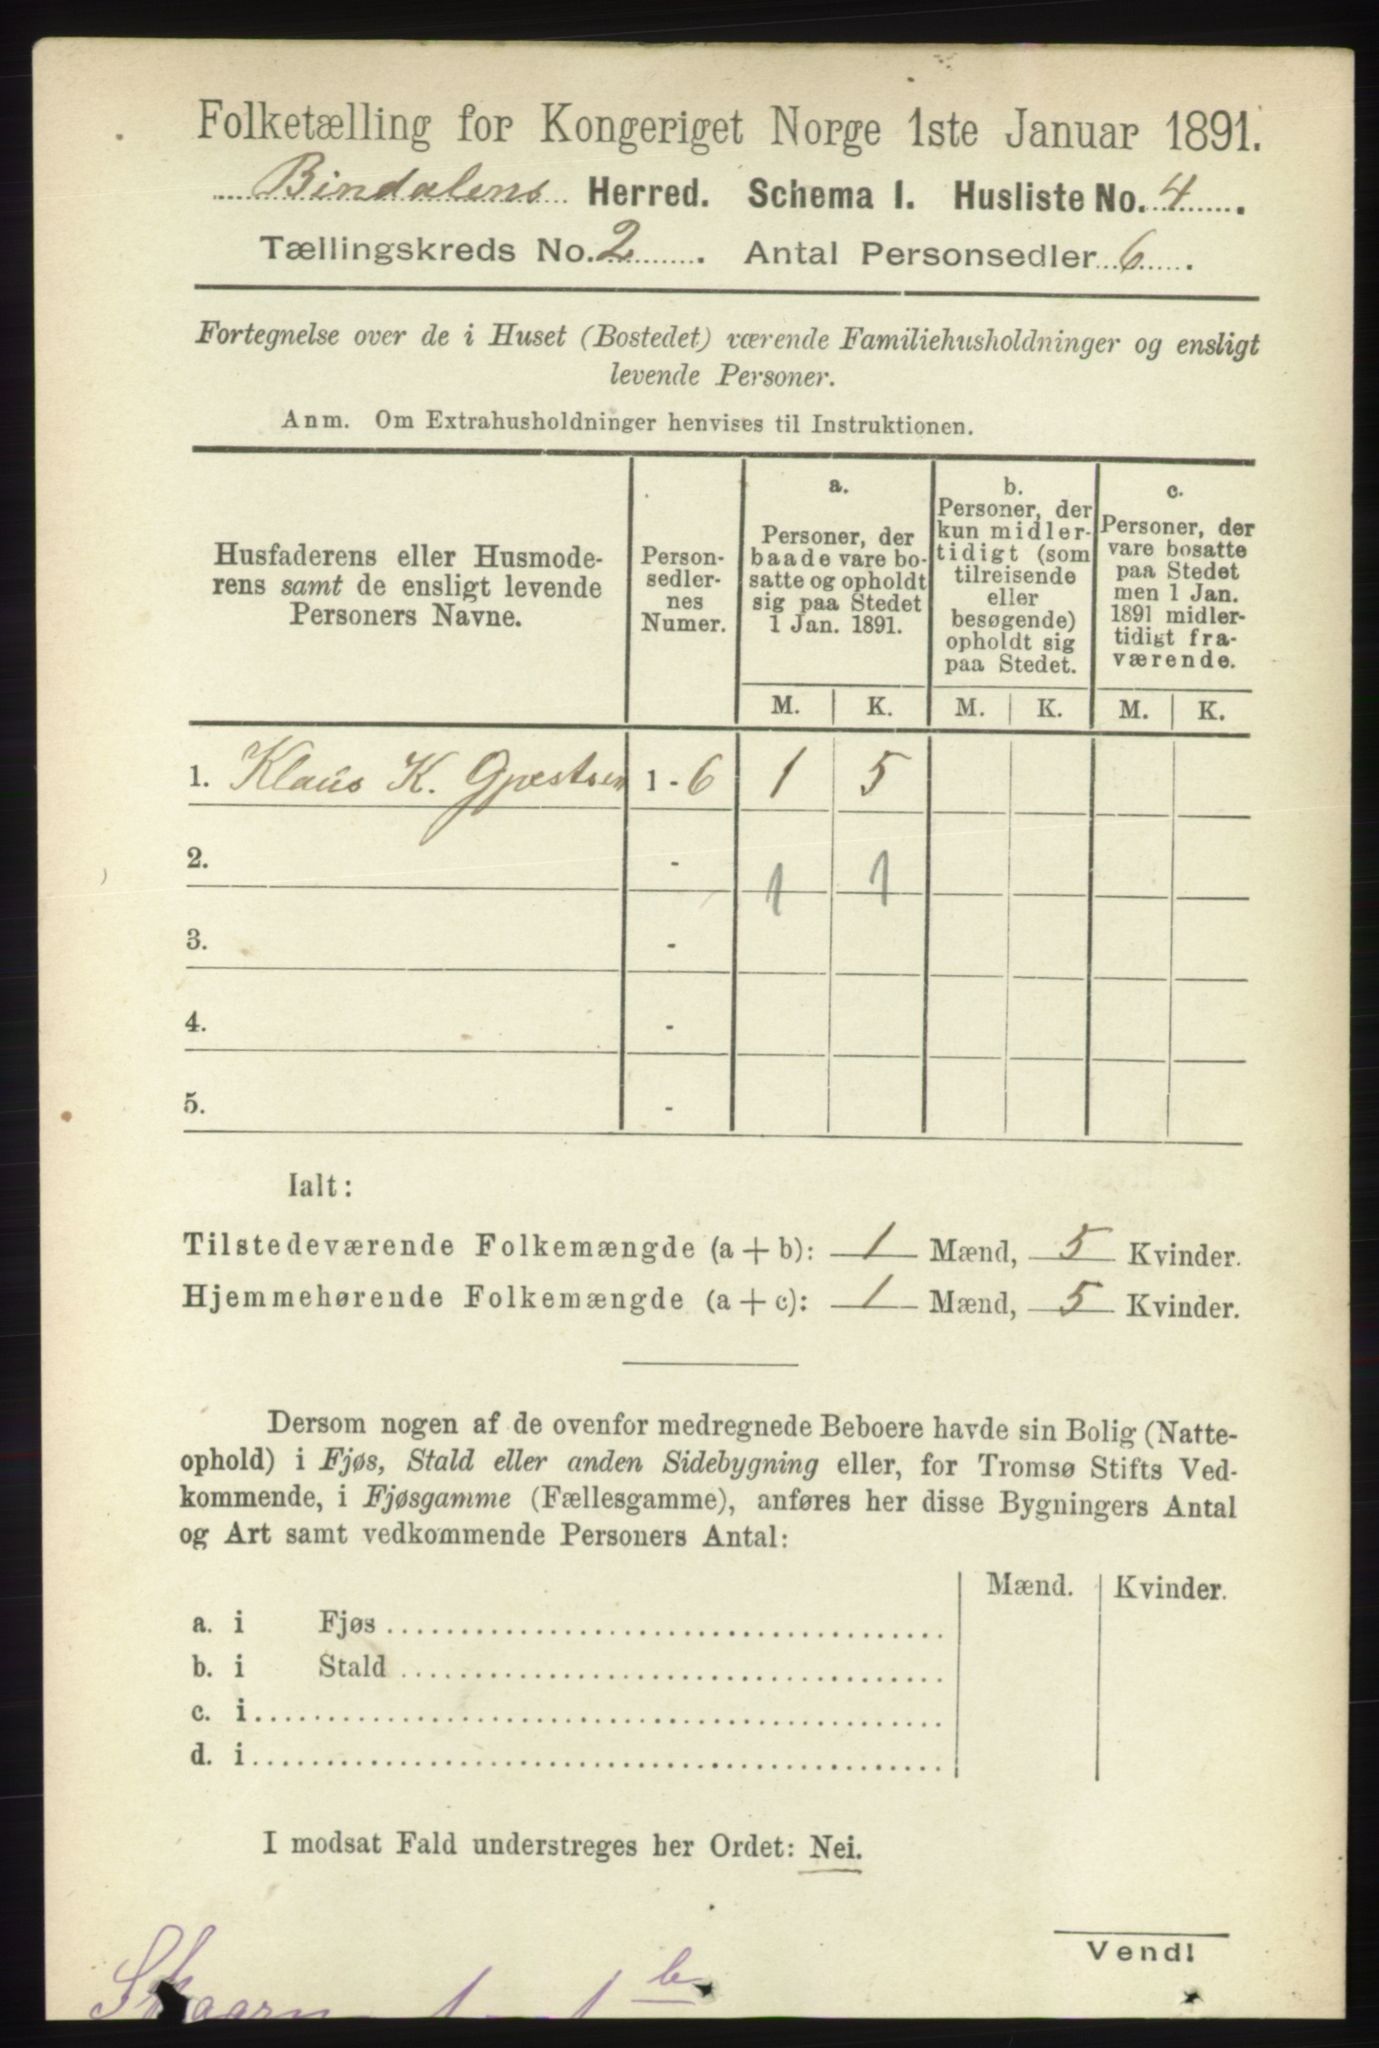 Folketælling for Kongeriget Norge 1ste Januar 1891.
Bindalens Herred. Schema I. Husliste No. 4.
Tællingskreds No. 2. Antal Personsedler 6.
Fortegnelse over de i Huset (Bostedet) værende Familiehusholdninger og ensligt
levende Personer.
Anm. Om Extrahusholdninger henvises til Instruktionen.
Husfaderens eller Husmode-
rens samt de ensligt levende
Personers Navne.
Person-
sedler-
nes
Numer.
a.
Personer, der
baade vare bo-
satte og opholdt
sig paa Stedet
1 Jan. 1891.
b.
Personer, der
kun midler-
tidigt (som
tilreisende
eller
besøgende)
opholdt sig
paa Stedet.
c.
Personer, der
vare bosatte
paa Stedet
men 1 Jan.
1891 midler-
tidigt fra-
værende.
M. K. M. K. M. K.
1. Klaus K. Gjæstsen 1 - 6 1 5
2. -
1 1
3. -
4. -
5. -
Ialt:
Tilstedeværende Folkemængde (a + b): 1 Mænd, 5 Kvinder.
Hjemmehørende Folkemængde (a + c): 1 Mænd, 5 Kvinder.
Dersom nogen af de ovenfor medregnede Beboere havde sin Bolig (Natte-
ophold) i Fjøs, Stald eller anden Sidebygning eller, for Tromsø Stifts Ved-
kommende, i Fjøsgamme (Fællesgamme), anføres her disse Bygningers Antal
og Art samt vedkommende Personers Antal:
Mænd. Kvinder.
a. i Fjøs
b. i Stald
c. i
d. i
I modsat Fald understreges her Ordet: Nei.
Vend!
1 1 b